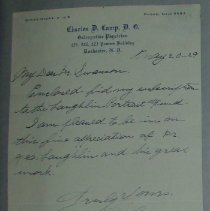 Charles D. Camp, D. O.
Osteopathic Physician
Powers Building
Rochester, N. Y.
May 20-29
My Dear Dr. Swanson
Enclosed find my subscription
to the Laughlin Portrait Fund.
I am pleased to be in on
this fine appreciation of Dr
Geo Laughlin and his great
work.
Truly Yours